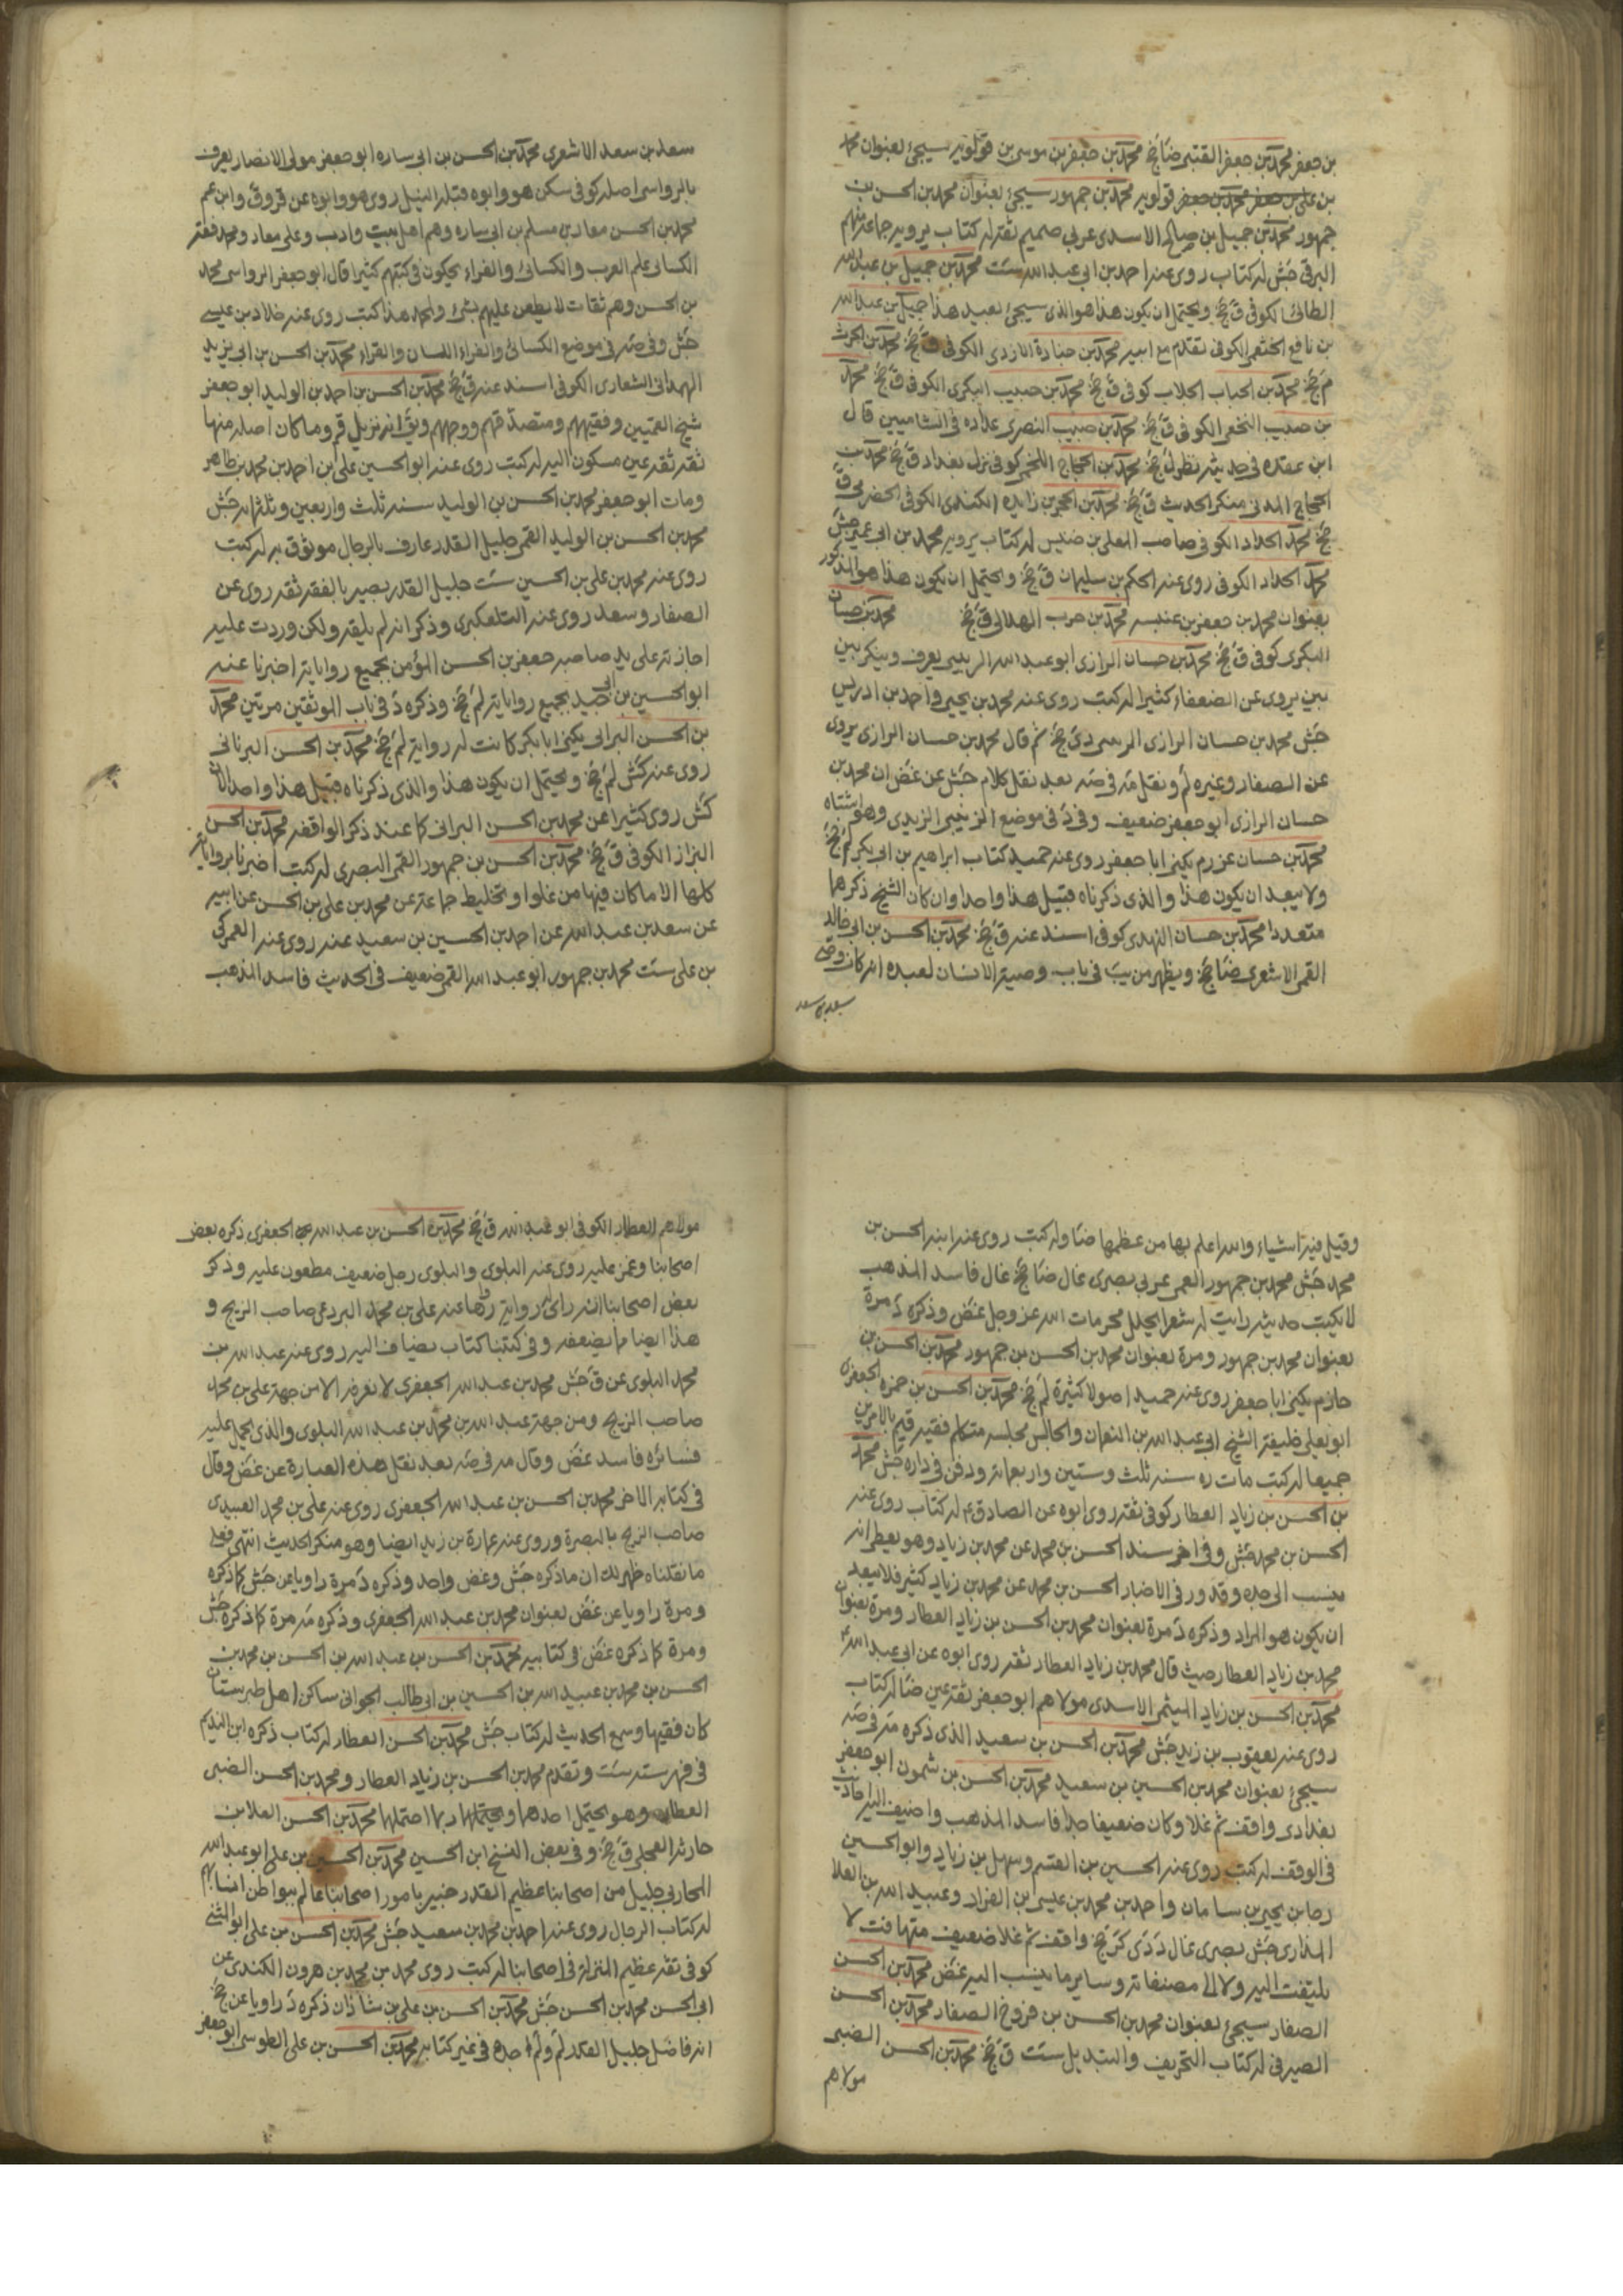 بن جعفر محمد بن جعفر القتبى ضا جخ محمد بن جعفر بن موسى بن قولويه سيجئ بعنوان محمد
بن على بن جعفر محمد بن جعفر قولويه محمد بن جمهور سيجئ بعنوان محمد بن الحسن بن
جمهور محمد بن جميل بن صالح الاسدى عربى صميم ثقة له كتاب يرويه جماعة منهم
البرقى جش له كتاب روى عنه احمد بن ابى عبد الله ست محمد بن جميل بن عبد الله
الطائى الكوفى ق جخ ويحتمل ان يكون هذا هو الذى سيجئ بعيد هذا جميل بن عبد الله
بن نافع الخثعمى الكوفى تقدم مع ابيه محمد بن جنادة الازدى الكوفى ق جخ محمد بن الحرث
م جخ محمد بن الحباب الجلاب كوفى ق جخ محمد بن حبيب البكرى الكوفى ق جخ محمد
بن حبيب النخعى الكوفى ق جخ محمد بن حبيب النصرى عداده فى الشاميين قال
ابن عقده فى حديثه نظر ل جخ محمد بن الحجاج اللخمى كوفى نزل بغداد ق جخ محمد بن
الحجاج المدنى منكر الحديث ق جخ محمد بن الحجر بن زايده الكندى الكوفى الحضرمى ق
جخ محمد الحداد الكوفى صاحب المعلى بن خنيس له كتاب يرويه محمد بن ابى عمير جش
محمد الحداد الكوفى روى عنه الحكم بن سليمان ق جخ ويحتمل ان يكون هذا هو المذكور
بعنوان محمد بن جعفر بن عنبسه محمد بن حرب الهلالى ق جخ محمد بن حسان
البكرى كوفى ق جخ محمد بن حسان الرازى ابو عبد الله الزينبى يعرف وينكر بين
بين يروى عن الضعفاء كثيرا له كتب روى عنه محمد بن يحيى واحمد بن ادريس
جش محمد بن حسان الرازى دى جخ ثم قال محمد بن حسان الرازى يروى
عن الصفار وغيره لم ونقل مه فى صه بعد نقل كلام جش عن غض ان محمد بن
حسان الرازى ابو جعفر ضعيف وفى د فى موضع الزينبى الزيدى وهو اشتباه
محمد بن حسان عرزم يكنى ابا جعفر روى عنه حميد كتاب ابراهيم بن ابى بكر لم جخ
ولا يبعد ان يكون هذا والذى ذكرناه قبيل هذا واحدا وان كان الشيخ ذكرهما
متعددا محمد بن حسان النهدى كوفى اسند عنه ق جخ محمد بن الحسن بن ابى خالد
القمى الاشعرى ضا جخ ويظهر من يب فى باب وصية الانسان لعبده انه كان وصى
سعد بن سعد
سعد بن سعد الاشعرى محمد بن الحسن بن ابى ساره ابو جعفر مولى الانصار يعرف
بالرواسى اصله كوفى سكن هو وابوه قبله النيل روى هو وابوه عن قر وق وابن عم
محمد بن الحسن معاذ بن مسلم بن ابى ساره وهم اهل بيت وادب وعلى معاذ ومحمد فقه
الكسائى علم العرب والكسائى والفراء يحكون فى كتبهم كثيرا قال ابو جعفر الرواسى محمد
بن الحسن وهم ثقات لا يطعن عليهم بشئ ولمحمد هذا كتب روى عنه خلاد بن عيسى
جش وفى صه فى موضع الكسائى والفراء اللسان والقراء محمد بن الحسن بن ابى يزيد
الهمدانى الشعارى الكوفى اسند عنه ق جخ محمد بن الحسن بن احمد بن الوليد ابو جعفر
شيخ القميين وفقيههم ومتصدقهم ووجههم ويق انه نزيل قم وما كان اصله منها
ثقة ثقة عين مسكون اليه له كتب روى عنه ابو الحسين على بن احمد بن محمد بن طاهر
ومات ابو جعفر محمد بن الحسن بن الوليد سنه ثلث واربعين وثلثمائه جش
محمد بن الحسن بن الوليد القمى جليل القدر عارف بالرجال موثوق به له كتب
روى عنه محمد بن على بن الحسين ست جليل القدر بصير بالفقه ثقه روى عن
الصفار وسعد روى عنه التلعكبرى وذكر انه لم يلقه ولكن وردت عليه
اجازته على يد صاحبه جعفر بن الحسن المؤمن بجميع رواياته اخبرنا عنه
ابو الحسين بن ابى جيد بجميع رواياته لم جخ وذكره د فى باب الموثقين مرتين محمد
بن الحسن البرانى يكنى ابا بكر كانت له رواية لم جخ محمد بن الحسن البرنانى
روى عنه كش لم جخ ويحتمل ان يكون هذا والذى ذكرناه قبيل هذا واحدا لان
كش روى كثيرا عن محمد بن الحسن البرانى كما عند ذكر الواقفه محمد بن الحسن
البزاز الكوفى ق جخ محمد بن الحسن بن جمهور القمى البصرى له كتب اخبرنا برواياته
كلها الا ما كان فيها من غلوا وتخليط جماعة عن محمد بن على بن الحسن عن ابيه
عن سعد بن عبد الله عن احمد بن الحسين بن سعيد عنه روى عنه العمركى
بن على ست محمد بن جمهور ابو عبد الله القمى ضعيف فى الحديث فاسد المذهب
وقيل فيه اشياء والله اعلم بها من عظمها ضا وله كتب روى عنه ابنه الحسن بن
محمد جش محمد بن جمهور العمى عربى بصرى غال ضا جخ غال فاسد المذهب
لا يكتب حديثه رايت له شعرا يحلل محرمات الله عز وجل غض وذكره د مرة
بعنوان محمد بن جمهور ومرة بعنوان محمد بن الحسن بن جمهور محمد بن الحسن بن
حازم يكنى ابا جعفر روى عنه حميد اصولا كثيرة لم جخ محمد بن الحسن بن حمزه الجعفرى
ابو يعلى خليفة الشيخ ابى عبد الله بن النعمان والجالس مجلسه متكلم فقيه قيم بالامرين
جميعا له كتب مات ره سنه ثلث وستين واربعمائه ودفن فى داره جش محمد
بن الحسن بن زياد العطار كوفى ثقه روى ابوه عن الصادق ع له كتاب روى عنه
الحسن بن محمد جش وفى اخر سند الحسن بن محمد عن محمد بن زياد وهو يعطى انه
ينسب الى جده وقد ورد فى الاخبار الحسن بن محمد عن محمد بن زياد كثير فلا يبعد
ان يكون هو المراد وذكره د مرة بعنوان محمد بن الحسن بن زياد العطار ومرة بعنوان
محمد بن زياد العطار حيث قال محمد بن زياد العطار ثقه روى ابوه عن ابى عبد الله ع
محمد بن الحسن بن زياد الميثمى الاسدى مولاهم ابو جعفر ثقه عين ضا له كتاب
روى عنه يعقوب بن زيد جش محمد بن الحسن بن سعيد الذى ذكره مه فى صه
سيجئ بعنوان محمد بن الحسين بن سعيد محمد بن الحسن بن شمون ابو جعفر
بغدادى واقف ثم غلا وكان ضعيفا جدا فاسد المذهب واضيف اليه احاديث
فى الوقف له كتب روى عنه الحسين بن القسم وسهل بن زياد وابو الحسين
رجا بن يحيى بن سامان واحمد بن محمد بن عيسى بن الغراد وعبيد الله بن العلا
المذارى جش بصرى غال د دى كر جخ واقف ثم غلا ضعيف متهافت لا
يلتفت اليه ولا الى مصنفاته وساير ما ينسب اليه غض محمد بن الحسن
الصفار سيجئ بعنوان محمد بن الحسن بن فروخ الصفار محمد بن الحسن
الصيرفى له كتاب التحريف والتبديل ست ق جخ محمد بن الحسن الضبى
مولاهم
مولاهم العطار الكوفى ابو عبد الله ق جخ محمد بن الحسن بن عبد الله الجعفرى ذكره بعض
اصحابنا وغمز عليه روى عنه البلوى والبلوى رجل ضعيف مطعون عليه وذكر
بعض اصحابنا انه راى رواية رواها عنه على بن محمد البردعى صاحب الزنج و
هذا ايضا ما يضعفه وفى كتبنا كتاب يضاف اليه روى عنه عبد الله بن
محمد البلوى عن ق جش محمد بن عبد الله الجعفرى لا نعرفه الا من جهة على بن محمد
صاحب الزنج ومن جهة عبد الله بن محمد بن عبد الله البلوى والذى يحمل عليه
فسائره فاسد غض وقال مه فى صه بعد نقل هذه العبارة عن غض وقال
فى كتابه الاخر محمد بن الحسن بن عبد الله الجعفرى روى عنه على بن محمد العبيدى
صاحب الزنج بالبصرة وروى عنه عمارة بن زيد ايضا وهو منكر الحديث انتهى فعلى
ما نقلناه ظهر لك ان ما ذكره جش وغض واحد وذكره د مرة راويا عن جش كما ذكره
ومرة راويا عن غض بعنوان محمد بن عبد الله الجعفرى وذكره مه مرة كما ذكره جش
ومرة كما ذكره غض فى كتابيه محمد بن الحسن بن عبد الله بن الحسن بن محمد بن
الحسن بن محمد بن عبيد الله بن الحسين بن ابى طالب الجوانى ساكن اهل طبرستان
كان فقيها وسمع الحديث له كتاب جش محمد بن الحسن العطار له كتاب ذكره ابن النديم
فى فهرسته ست وتقدم محمد بن الحسن بن زياد العطار ومحمد بن الحسن الضبى
العطار وهو يحتمل احدهما ويحتملهما ربما احتملها محمد بن الحسن العلا بن
حارثه العجلى ق جخ وفى بعض النسخ ابن الحسين محمد بن الحسين بن على ابو عبد الله
المحاربى جليل من اصحابنا عظيم القدر خبير بامور اصحابنا عالم ببواطن انسابهم
له كتاب الرجال روى عنه احمد بن محمد بن سعيد جش محمد بن الحسن بن على ابو المثنى
كوفى ثقه عظيم المنزلة فى اصحابنا له كتب روى محمد بن محمد بن هرون الكندى عن
ابى الحسن محمد بن الحسن جش محمد بن الحسن بن على بن شاذان ذكره د راويا عن جخ
انه فاضل جليل القدر لم ولم اجده فى غير كتابه محمد بن الحسن بن على الطوسى ابو جعفر